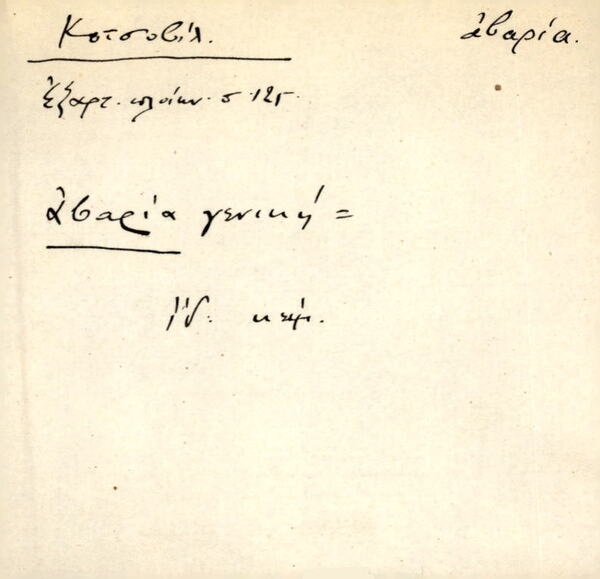 Κοτσοβίλ. ἀβαρία.
ἐξαρτ. πλοίων σ.
ἀβαρία γενική =
ἰδ.